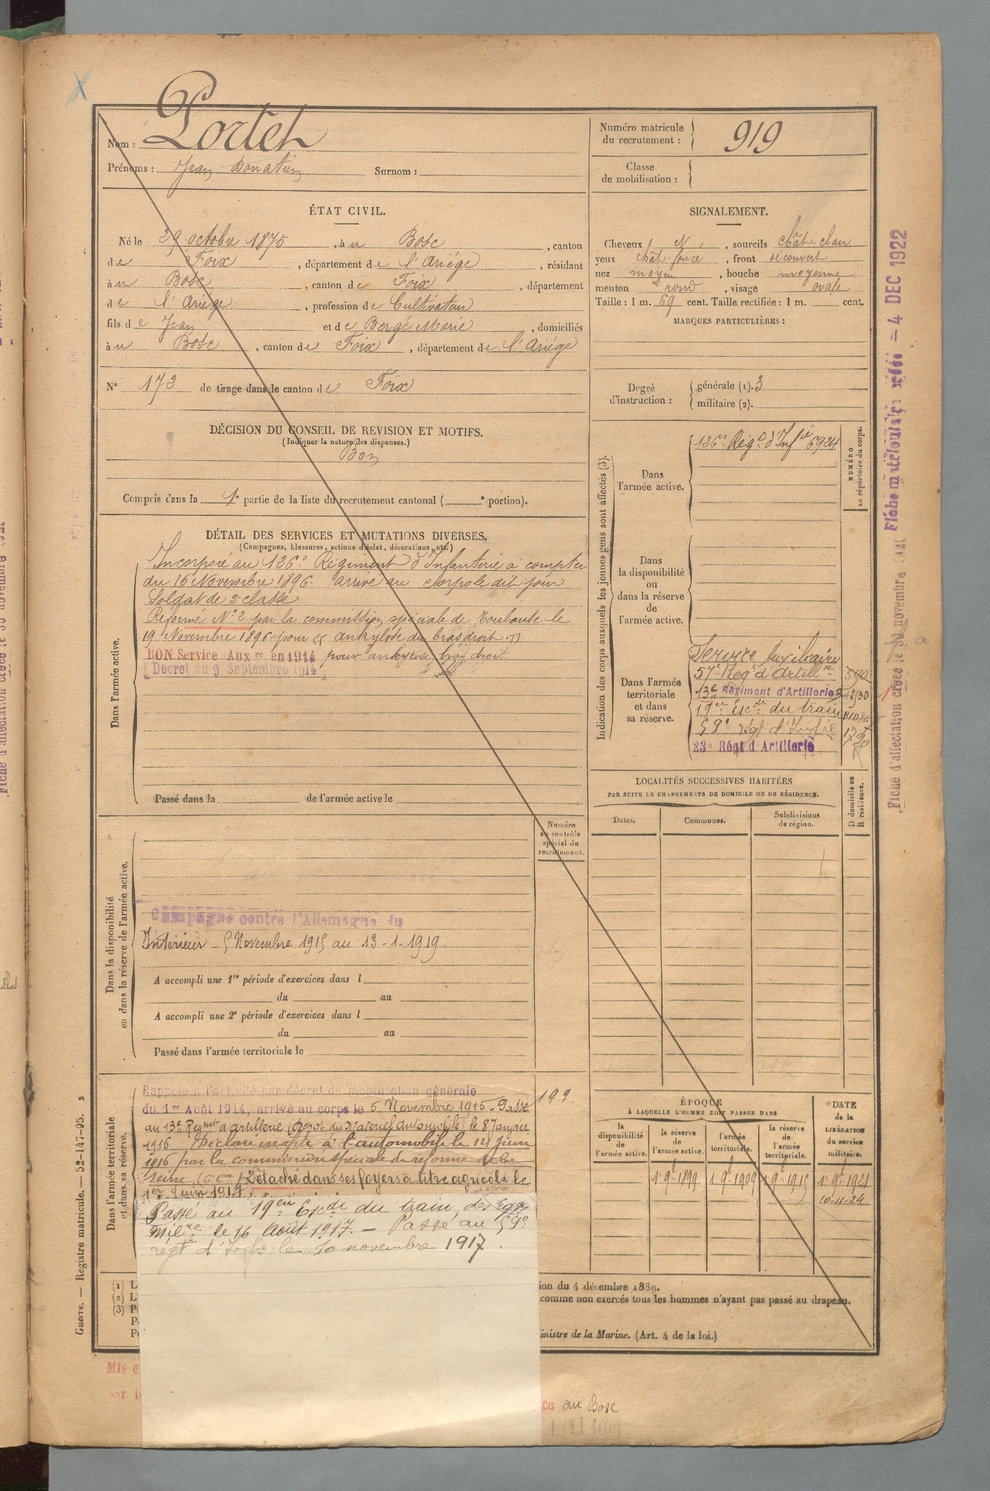 Nom : Portet
Prénoms : Jean Donatien Surnom :
Numéro matricule du recrutement : 919
Classe de mobilisation :
ÉTAT CIVIL.
Né le 29 octobre 1875, à u Bosc, canton
de Foix, département de l'Ariége, résidant
à u Bosc, canton de Foix, département
de l'Ariége, profession de Cultivateur
fils de Jean et de Bergé Marie, domiciliés
à u Bosc, canton de Foix, département de l'Ariége
N° 173 de tirage dans le canton de Foix
DÉCISION DU CONSEIL DE REVISION ET MOTIFS.
(Indiquer la nature des dispenses.)
Bon
Compris dans la 1e partie de la liste du recrutement cantonal ( e portion).
SIGNALEMENT.
Cheveux N., sourcils chat. clair
yeux chat. foncé, front découvert
nez moyen, bouche moyenne
menton rond, visage ovale
Taille : 1 m. 69 cent. Taille rectifiée : 1 m. cent.
MARQUES PARTICULIÈRES :
Degré d'instruction :
générale (1). 3
militaire (2).
DÉTAIL DES SERVICES ET MUTATIONS DIVERSES.
(Campagnes, blessures, actions d'éclat, décorations, etc.)
Dans l'armée active.
Incorporé au 126e Régiment d'Infanterie à compter
du 16 Novembre 1896. arrivé au corps le dit jour
Soldat de 2e classe
Réformé N° 2 par la commission spéciale de Toulouse le
19 Novembre 1896 pour « ankylose du bras droit. »
BON Service Auxre en 1914 pour ankylose bras droit
Décret du 9 Septembre 1914
Passé dans la de l'armée active le
Indication des corps auxquels les jeunes gens sont affectés (3).
NUMÉRO au répertoire du corps.
Dans l'armée active.
126e Régt d'Infie 6924
Dans la disponibilité ou dans la réserve de l'armée active.
Dans l'armée territoriale et dans sa réserve.
Service Auxiliaire
57e Régt d'Artillie
13e Régiment d'Artillerie
19em Escon du train
59e régt d'Infie
23e Régt d'Artillerie
LOCALITÉS SUCCESSIVES HABITÉES
PAR SUITE DE CHANGEMENTS DE DOMICILE OU DE RÉSIDENCE.
Dates.
Communes.
Subdivisions de région.
D domicile ou R résidence.
Numéro au contrôle spécial du recrutement.
Dans la disponibilité ou dans la réserve de l'armée active.
Campagne contre l'Allemagne du
Intérieur - 5 Novembre 1915 au 13-1-1919.
A accompli une 1re période d'exercices dans l
du au
A accompli une 2e période d'exercices dans l
du au
Passé dans l'armée territoriale le
Dans l'armée territoriale et dans sa réserve.
Rappelé à l'activité par décret de mobilisation générale
du 1er Août 1914, arrivé au corps le 5 Novembre 1915. Passé
au 13e Régiment d'artillerie (Dépôt du Matériel Automobile) le 8 Janvier
1916. Déclaré inapte à l'automobile le 12 Juin
1916 par la commission spéciale de réforme de la
Seine. Détaché dans ses foyers à titre agricole le
1er Juin 1917.
Passé au 19em Escon du train, des Equip.
Milres le 16 Août 1917. — Passé au 59e
régt d'Infie le 10 novembre 1917.
199
ÉPOQUE
À LAQUELLE L'HOMME DOIT PASSER DANS
la disponibilité de l'armée active.
la réserve de l'armée active.
l'armée territoriale.
la réserve de l'armée territoriale.
DATE de la LIBÉRATION du service militaire.
1.9.1899
1.9.1909
1.9.1915
1.9.1921
10-11-24
(1) L
(2) L
(3) P
ion du 4 décembre 1889.
comme non exercés tous les hommes n'ayant pas passé au drapeau.
Ministre de la Marine. (Art. 4 de la loi.)
Guerre. — Registre matricule. — 52-147-95. 2
Mis e
ce au Bosc
Fiche matriculaire créée — 4 DEC 1922
Fiche d'affectation créée le 30 novembre